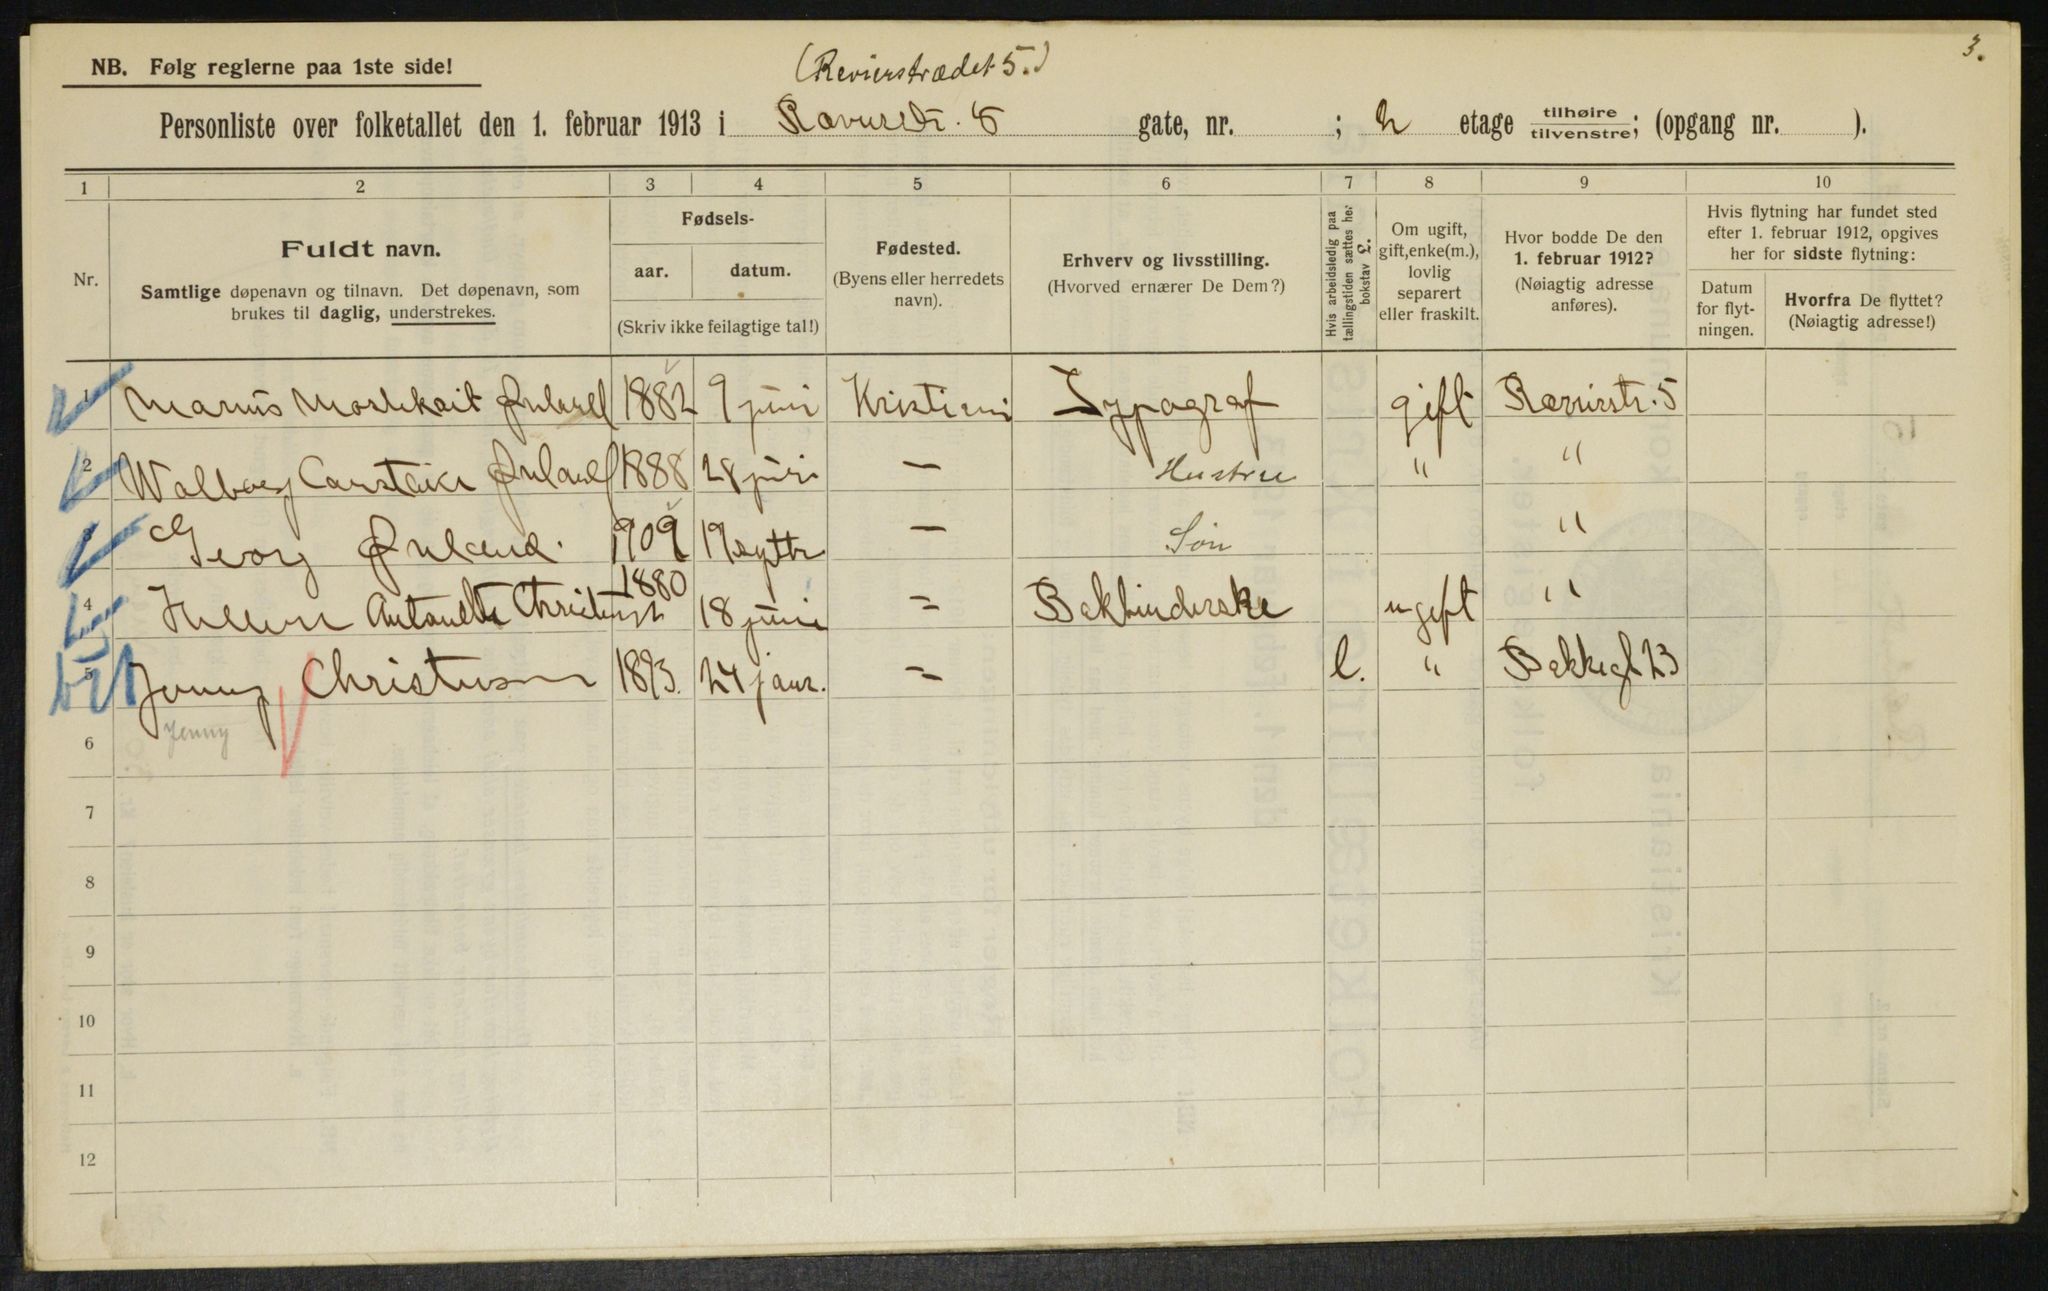 3.
NB. Følg reglerne paa 1ste side!
(Revierstrædet 5.)
Personliste over folketallet den 1. februar 1913 i gate, nr. ; 2 etage tilhøire tilvenstre; (opgang nr. ).
1 2 3 4 5 6 7 8 9 10
Nr.
Fuldt navn.
Samtlige døpenavn og tilnavn. Det døpenavn, som
brukes til daglig, understrekes.
Fødsels-
aar. datum.
(Skriv ikke feilagtige tal!)
Fødested.
(Byens eller herredets
navn).
Erhverv og livsstilling.
(Hvorved ernærer De Dem?)
Hvis arbeidsledig paa
tællingstiden sættes her
bokstav L.
Om ugift,
gift, enke(m.),
lovlig
separert
eller fraskilt.
Hvor bodde De den
1. februar 1912?
(Nøiagtig adresse
anføres).
Hvis flytning har fundet sted
efter 1. februar 1912, opgives
her for sidste flytning:
Datum
for flyt-
ningen.
Hvorfra De flyttet?
(Nøiagtig adresse!)
1 Marius 1882 9 juni Kristiani Typograf gift 5
2 Walborg 1888 28 juni — Hustru " "
3 Georg 1909 19 septbr — Søn "
4 Christensen 1880 18 juni = Bokbinderske ugift "
5 Jenny Christensen 1893. 24 janr. = l. " Bakkegt 23
Jenny
6
7
8
9
10
11
12